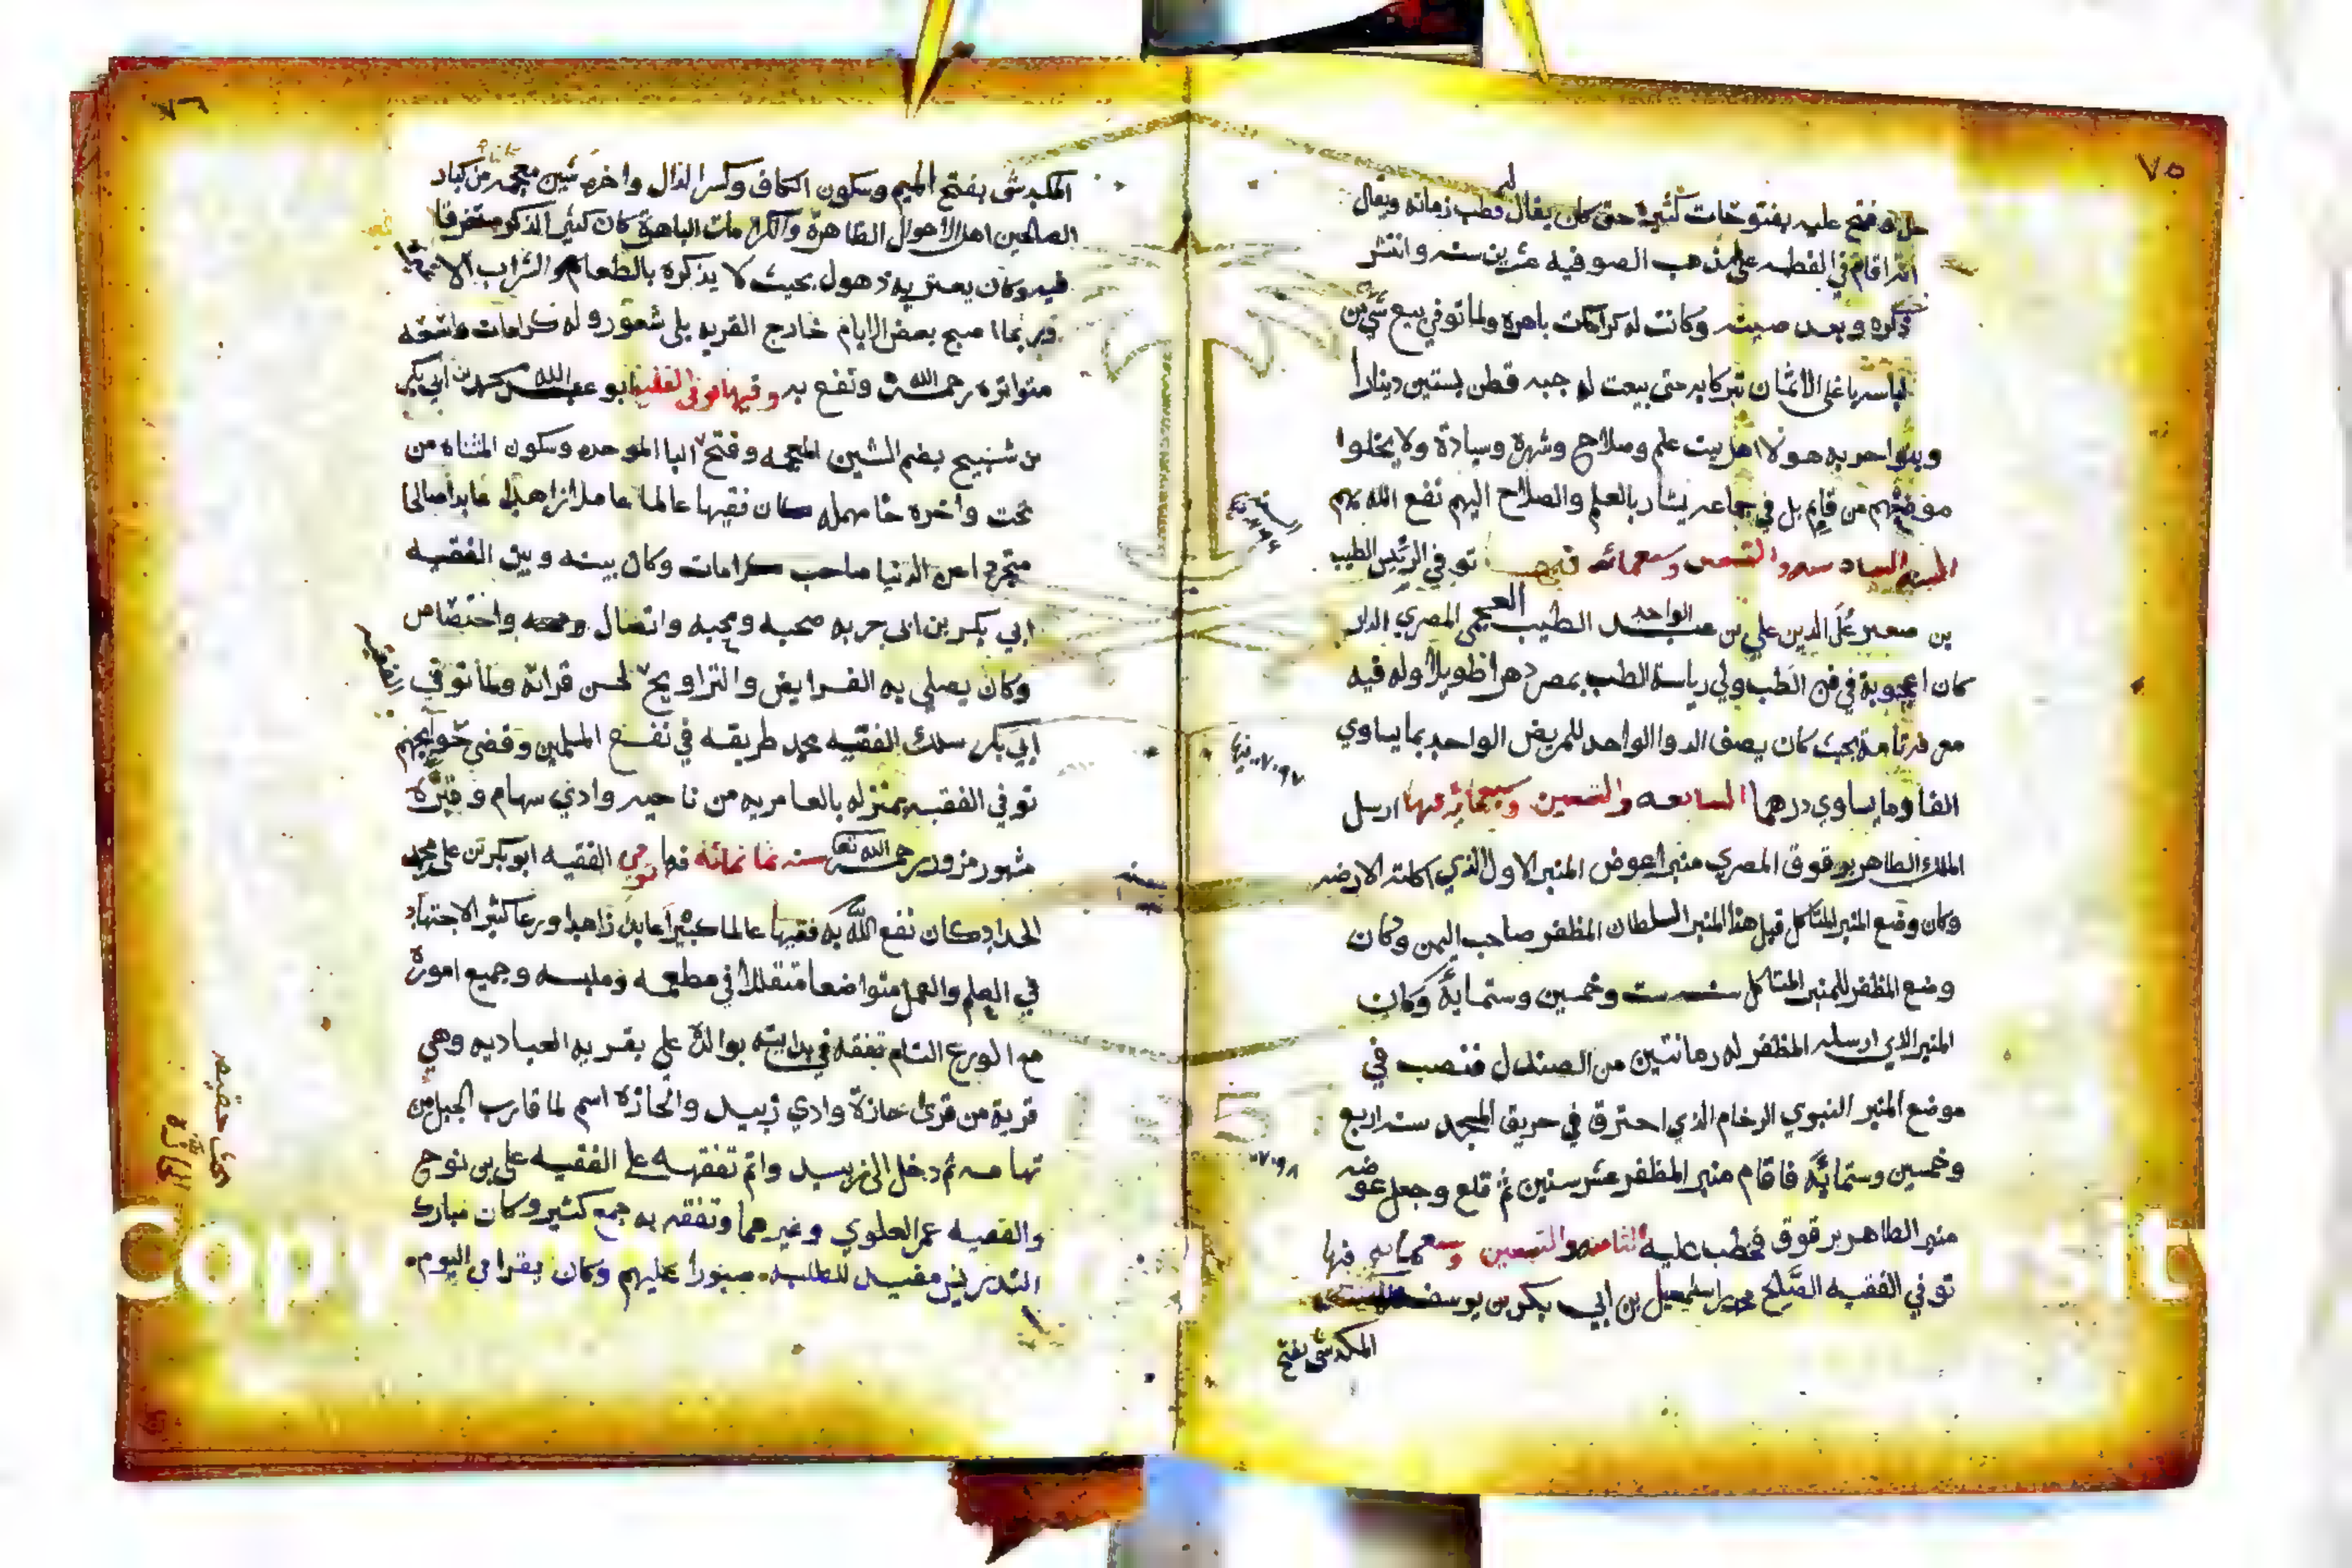 ٧٥
وفتح عليه بفتوحات كثيرة حتى كان يقال له قطب زمانه ويقال
انه اقام في القطبيه على مذهب الصوفيه عشرين سنه وانتشر
ذكره وبعد صيته وكانت له كرامات باهره ولما توفي بيع شي من
لباسه باغلى الاثمان تبركا به حتى بيعت له جبه قطن بستين دينارا
وبنوا حربه هولا اهل بيت علم وصلاح وشهرة وسيادة ولا يخلوا
موضعهم من قايم بل في جماعه يشار بالعلم والصلاح اليهم نفع الله بهم
السادسه والتسعين وسبعمائه فيها توفي الرئيس الطبيب
بن صغير على الدين علي بن عبد الواحد الطبيب المصري الدار
كان اعجوبة في فن الطب ولي رياسة الطب بمصر دهرا طويلا وله فيه
بحيث كان يصف الدوا الواحد للمريض الواحد بما يساوي
الفا وما يساوي درهما السابعه والتسعين وسبعمائه فيها ارسل
الملك الظاهر برقوق المصري منبرا عوض المنبر الاول الذي اكلته الارضه
وكان وضع المنبر المتاكل قبل هذا المنبر السلطان المظفر صاحب اليمن وكان
وضع المظفر للمنبر المتاكل سنه ست وخمسين وستمايه وكان
المنبر الذي ارسله المظفر له رمانتين من الصندل فنصب في
موضع المنبر النبوي الرخام الذي احترق في حريق المسجد سنه اربع
وخمسين وستمائه فاقام منبر المظفر عشر سنين ثم قلع وجعل عوضه
منبر الظاهر برقوق فخطب عليه الثامنه والتسعين وسبعمائه فيها
توفي الفقيه الصالح محمد بن اسمعيل بن ابي بكر بن يوسف
المكدشي بفتح
٧٩٧ فيها
٧٩٨
٧٦
المكدشي بفتح الميم وسكون الكاف وكسر الدال واخره شين معجمه من كبار
الصالحين اهل الاحوال الظاهرة والكرامات الباهرة كان كثير الذكر مستغرقا
فيه وكان يعتريه ذهول بحيث لا يذكره بالطعام والشراب الا
فربما اصبح بعض الايام خارج القريه بلى شعور وله كرامات
متواتره رحمه الله ونفع به وفيها توفي الفقيه ابو عبد الله محمد بن ابي بكر
من شبيح بضم الشين المعجمه وفتح البا الموحده وسكون المثناه من
تحت واخره حا مهمله كان فقيها عالما عاملا زاهدا عابدا صالحا
متجردا عن الدنيا صاحب كرامات وكان بينه وبين الفقيه
ابي بكر بن ابي حربه صحبه ومحبه واتصال واختصاص
وكان يصلي به الفرايض والتراويح لحسن قراته ولما توفي الفقيه
ابي بكر سلك الفقيه محمد طريقه في نفع المسلمين وقضى حوايجهم
توفي الفقيه بمنزله بالعامريه من ناحيه وادي سهام وقبره
مشهور مزور رحمه الله تعالى سنه ثمانمائه فيها توفي الفقيه ابو بكر بن علي بن محمد
الحداد كان نفع الله به فقيها عالما كبيرا عابدا زاهدا ورعا كثير الاجتهاد
في العلم والعمل متواضعا متقللا في مطعمه وملبسه وجميع اموره
مع الورع التام تفقه في بدايته بوالده علي بقريه العباديه وهي
قرية من قرى حازة وادي زبيد والحازه اسم لما قارب الجبل من
تهامه ثم دخل الى زبيد واتم تفقهه على الفقيه علي بن نوح
والفقيه عمر العلوي وغيرهما وتفقه به جمع كثير وكان مبارك
التدريس مفيد للطلبه صبورا عليهم وكان يقرا في اليوم